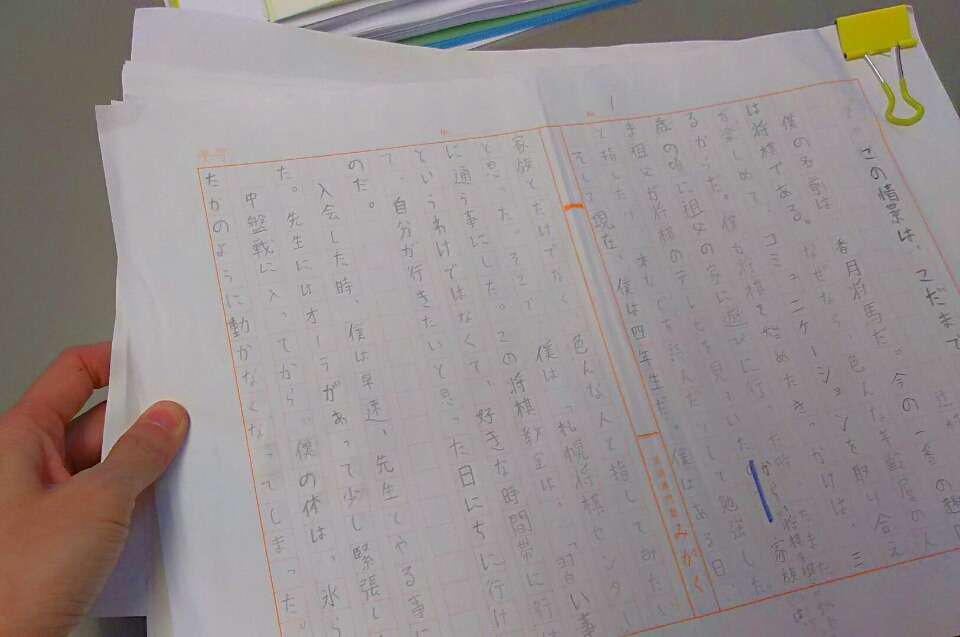 この情景は、こだまで
僕の名前は 香月将馬だ。今の一番の趣
は将棋である。なぜなら、色んな年齢層の人
が楽しめて、コミュニケーションを取り合え
るからだ。僕が将棋を始めたきっかけは、三
歳の時に祖父の家に遊びに行った時
ま祖父が将棋のテレビを見ていたから、家族
と指したり、本などを読んだりして勉強した。
そして現在、僕は四年生だ。僕はある日、
みがく
家族とだけでなく、色んな人と指してみたい
と思った。そこで 僕は「札幌将棋センター
に通う事にした。この将棋教室は、「習い事
というわけではなくて、好きな時間帯に行
て、自分が行きたいと思った日にちに行け
のだ。
入会した時、僕は早速、先生とやる事に
た。先生にはオーラがあって少し緊張し
中盤戦に入ってから 僕の体は、氷ら
たかのように動かなくなってしまった。